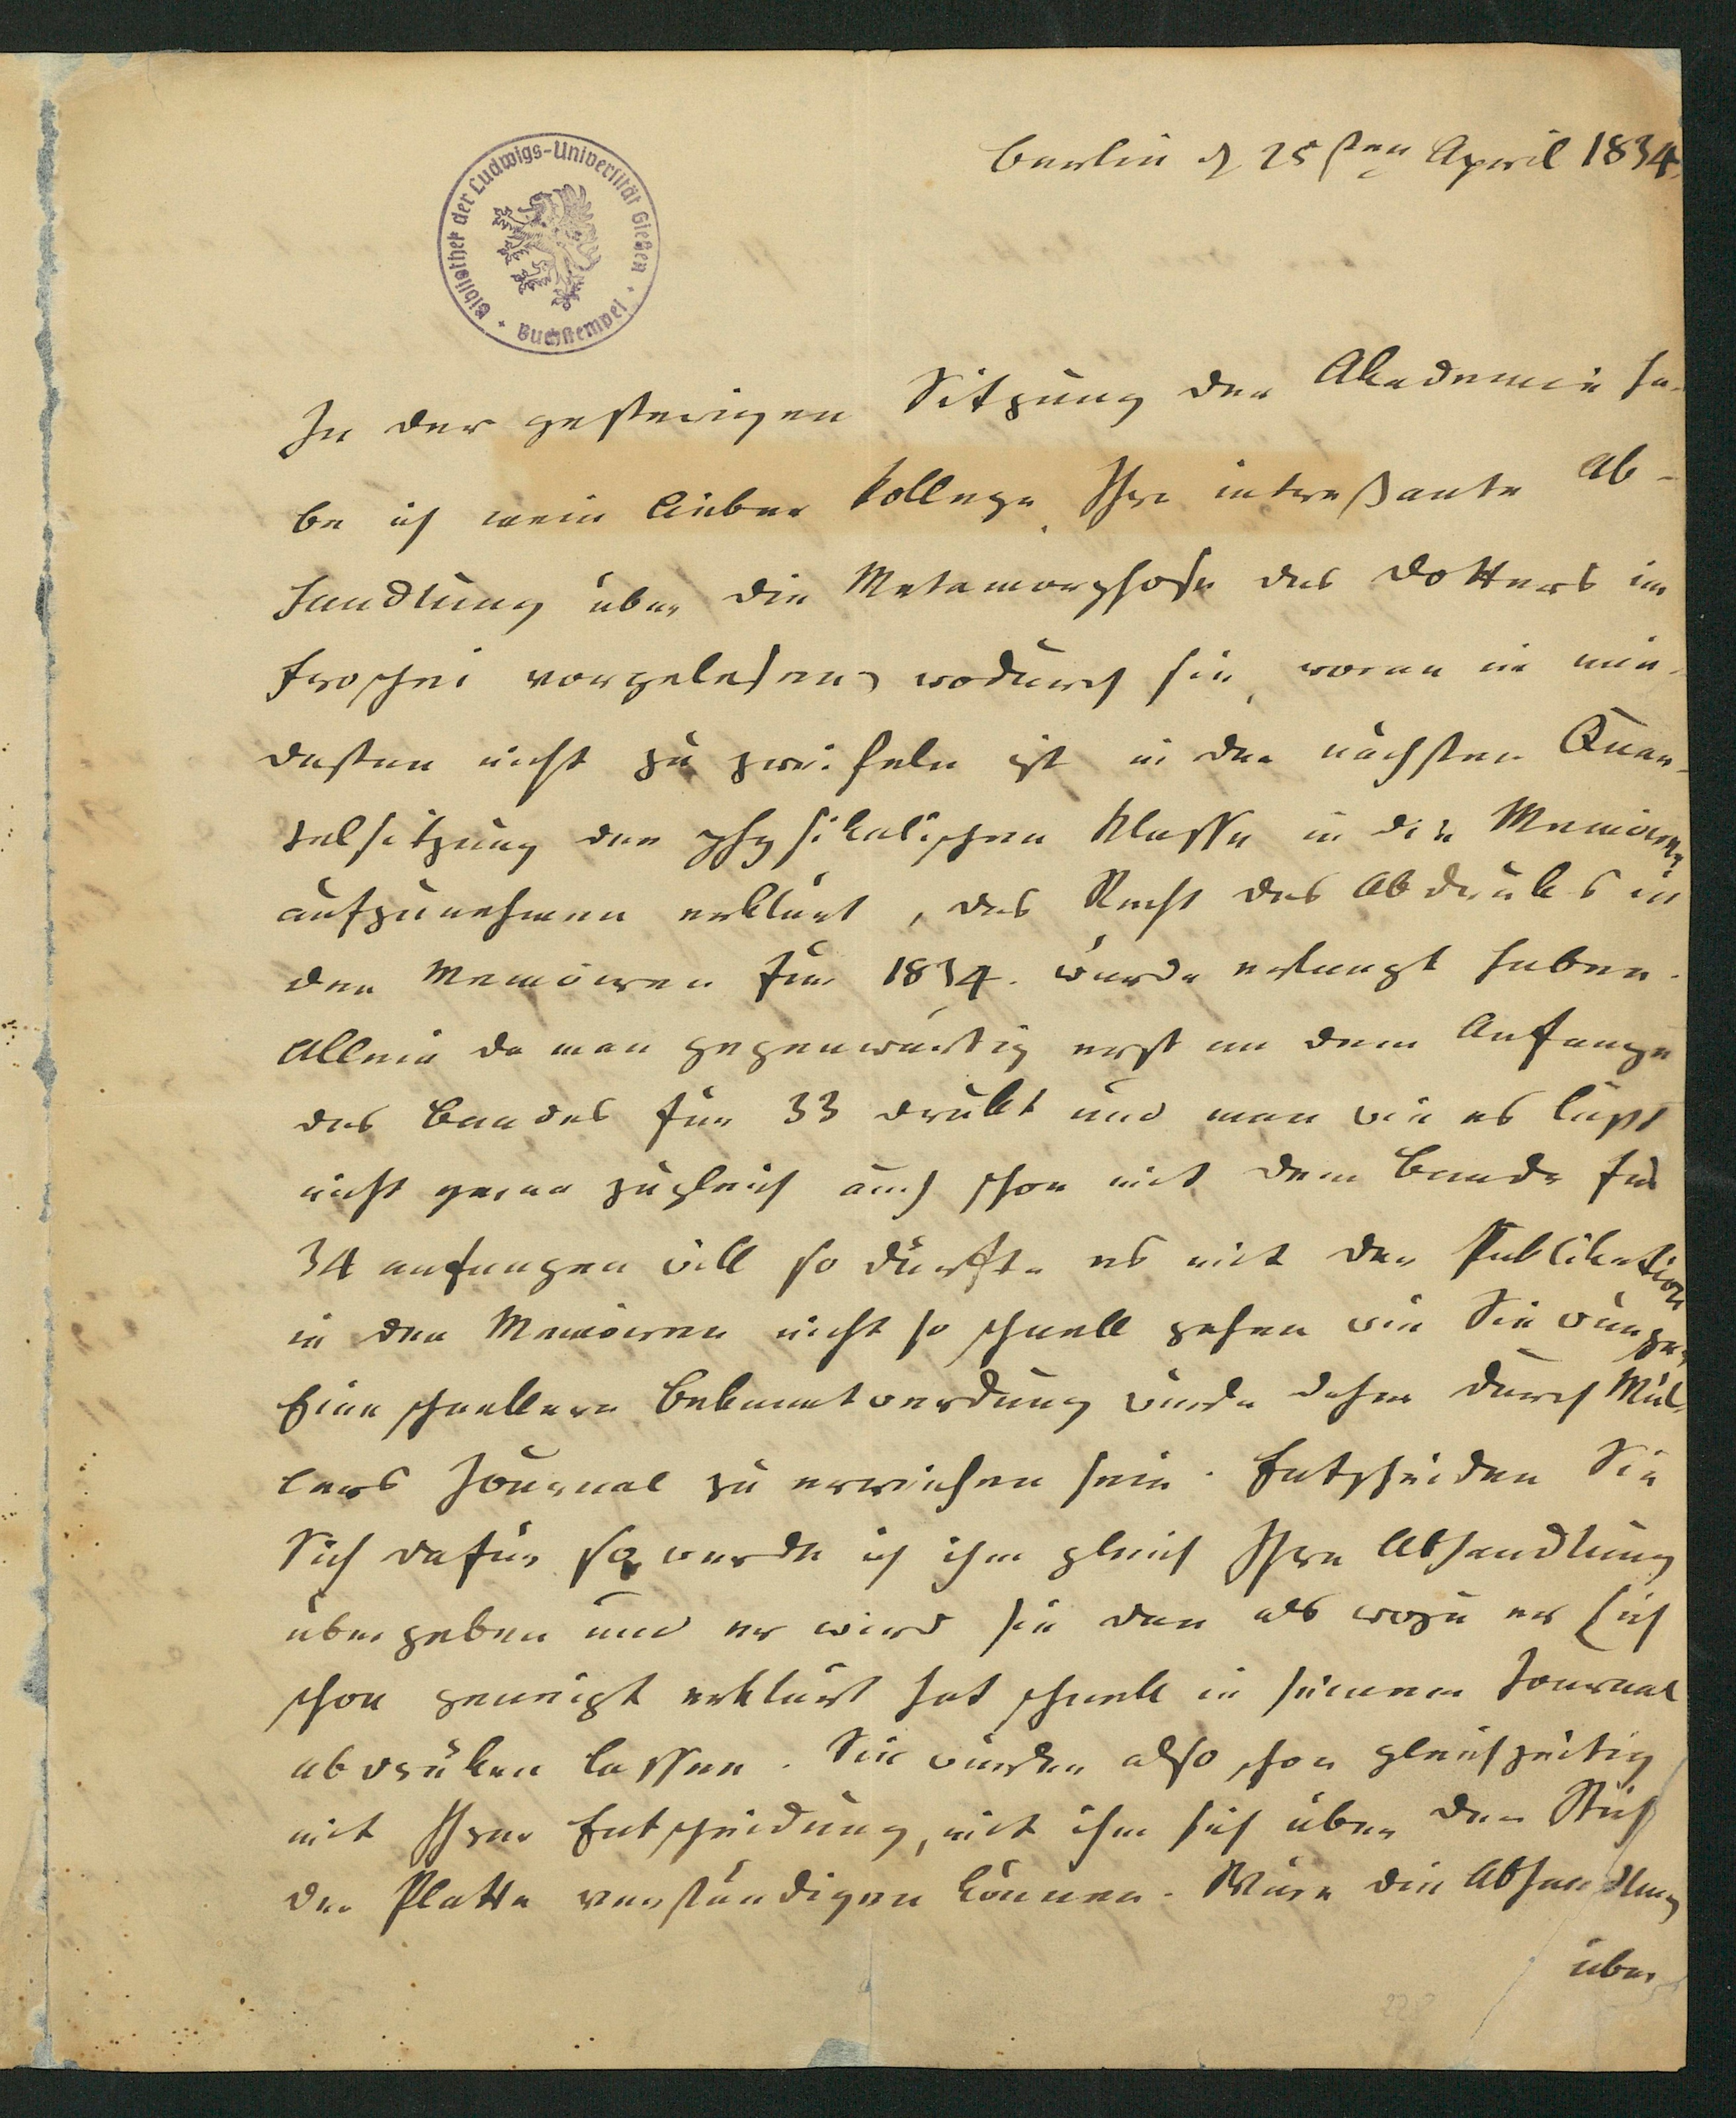 Berlin d 25sten April 1834.
Bibliothek der Ludwigs-Universität Gießen
Buchstempel
In der gestrigen Sitzung der Akademie ha-
be ich mein lieber Kollege Ihre intreßante Ab-
handlung über die Metamorphose des Dotters im
Froschei vorgelesen, wodurch sie, woran im min-
desten nicht zu zweifeln ist in der nächsten Quar-
talsitzung der physikalischen Klasse in die Memoiren
aufzunehmen erklärt, das Recht des Abdruks in
den Memoiren für 1834. würde erlangt haben.
Allein da man gegenwärtig erst an dem Anfange
des Bandes für 33 drukt und man wie es läßt
nicht gerne zugleich auch schon mit dem Bande für
34 anfangen will so dürfte es mit der Publikation
in den Memoiren nicht so schnell gehen wie Sie
Eine schnellere Bekanntwerdung würde daher durch Mül-
lers Journal zu erreichen sein. Entscheiden Sie
Sich dafür so werde ich ihm gleich Ihre Abhandlung
übergeben und er wird sie dan als wozu er sich
schon geneigt erklärt hat schnell in seinem Journal
abdruken lassen. Sie würden also schon gleichzeitig
mit Ihrer Entscheidung, mit ihm sich über den Stich
der Platte verständigen können. Wäre die Abhandlung
über